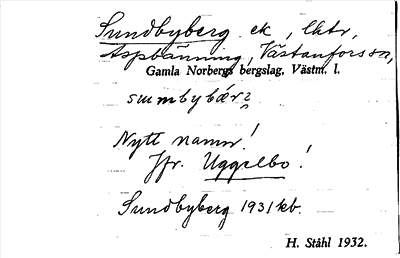 Sundbyberg ek, lktr,
Aspbänning, Västanfors sn,
Gamla Norbergs bergslag, Västm. l.
summbybärg
Nytt namn!
Jfr. Uggelbo!
Sundbyberg 1931 kb.
H. Ståhl 1932.